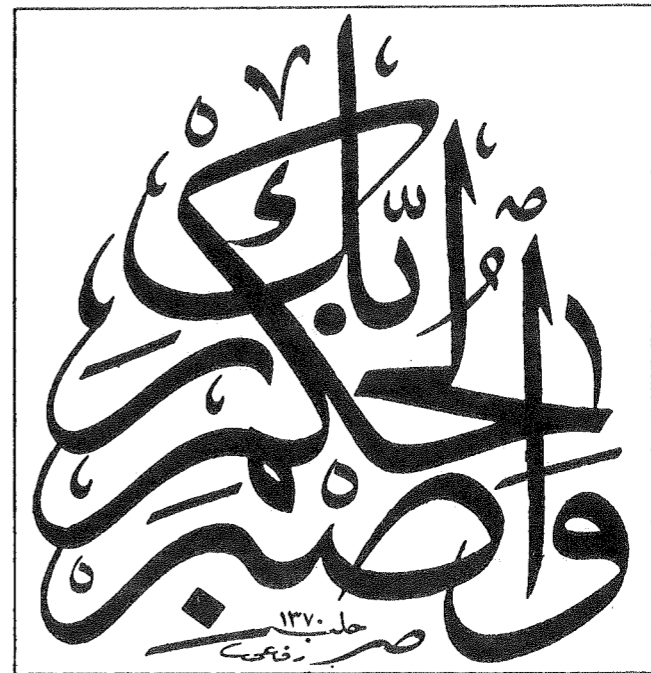 وَاصْبِرْ لِحُكْمِ رَبِّكَ
حلب ١٣٧٠